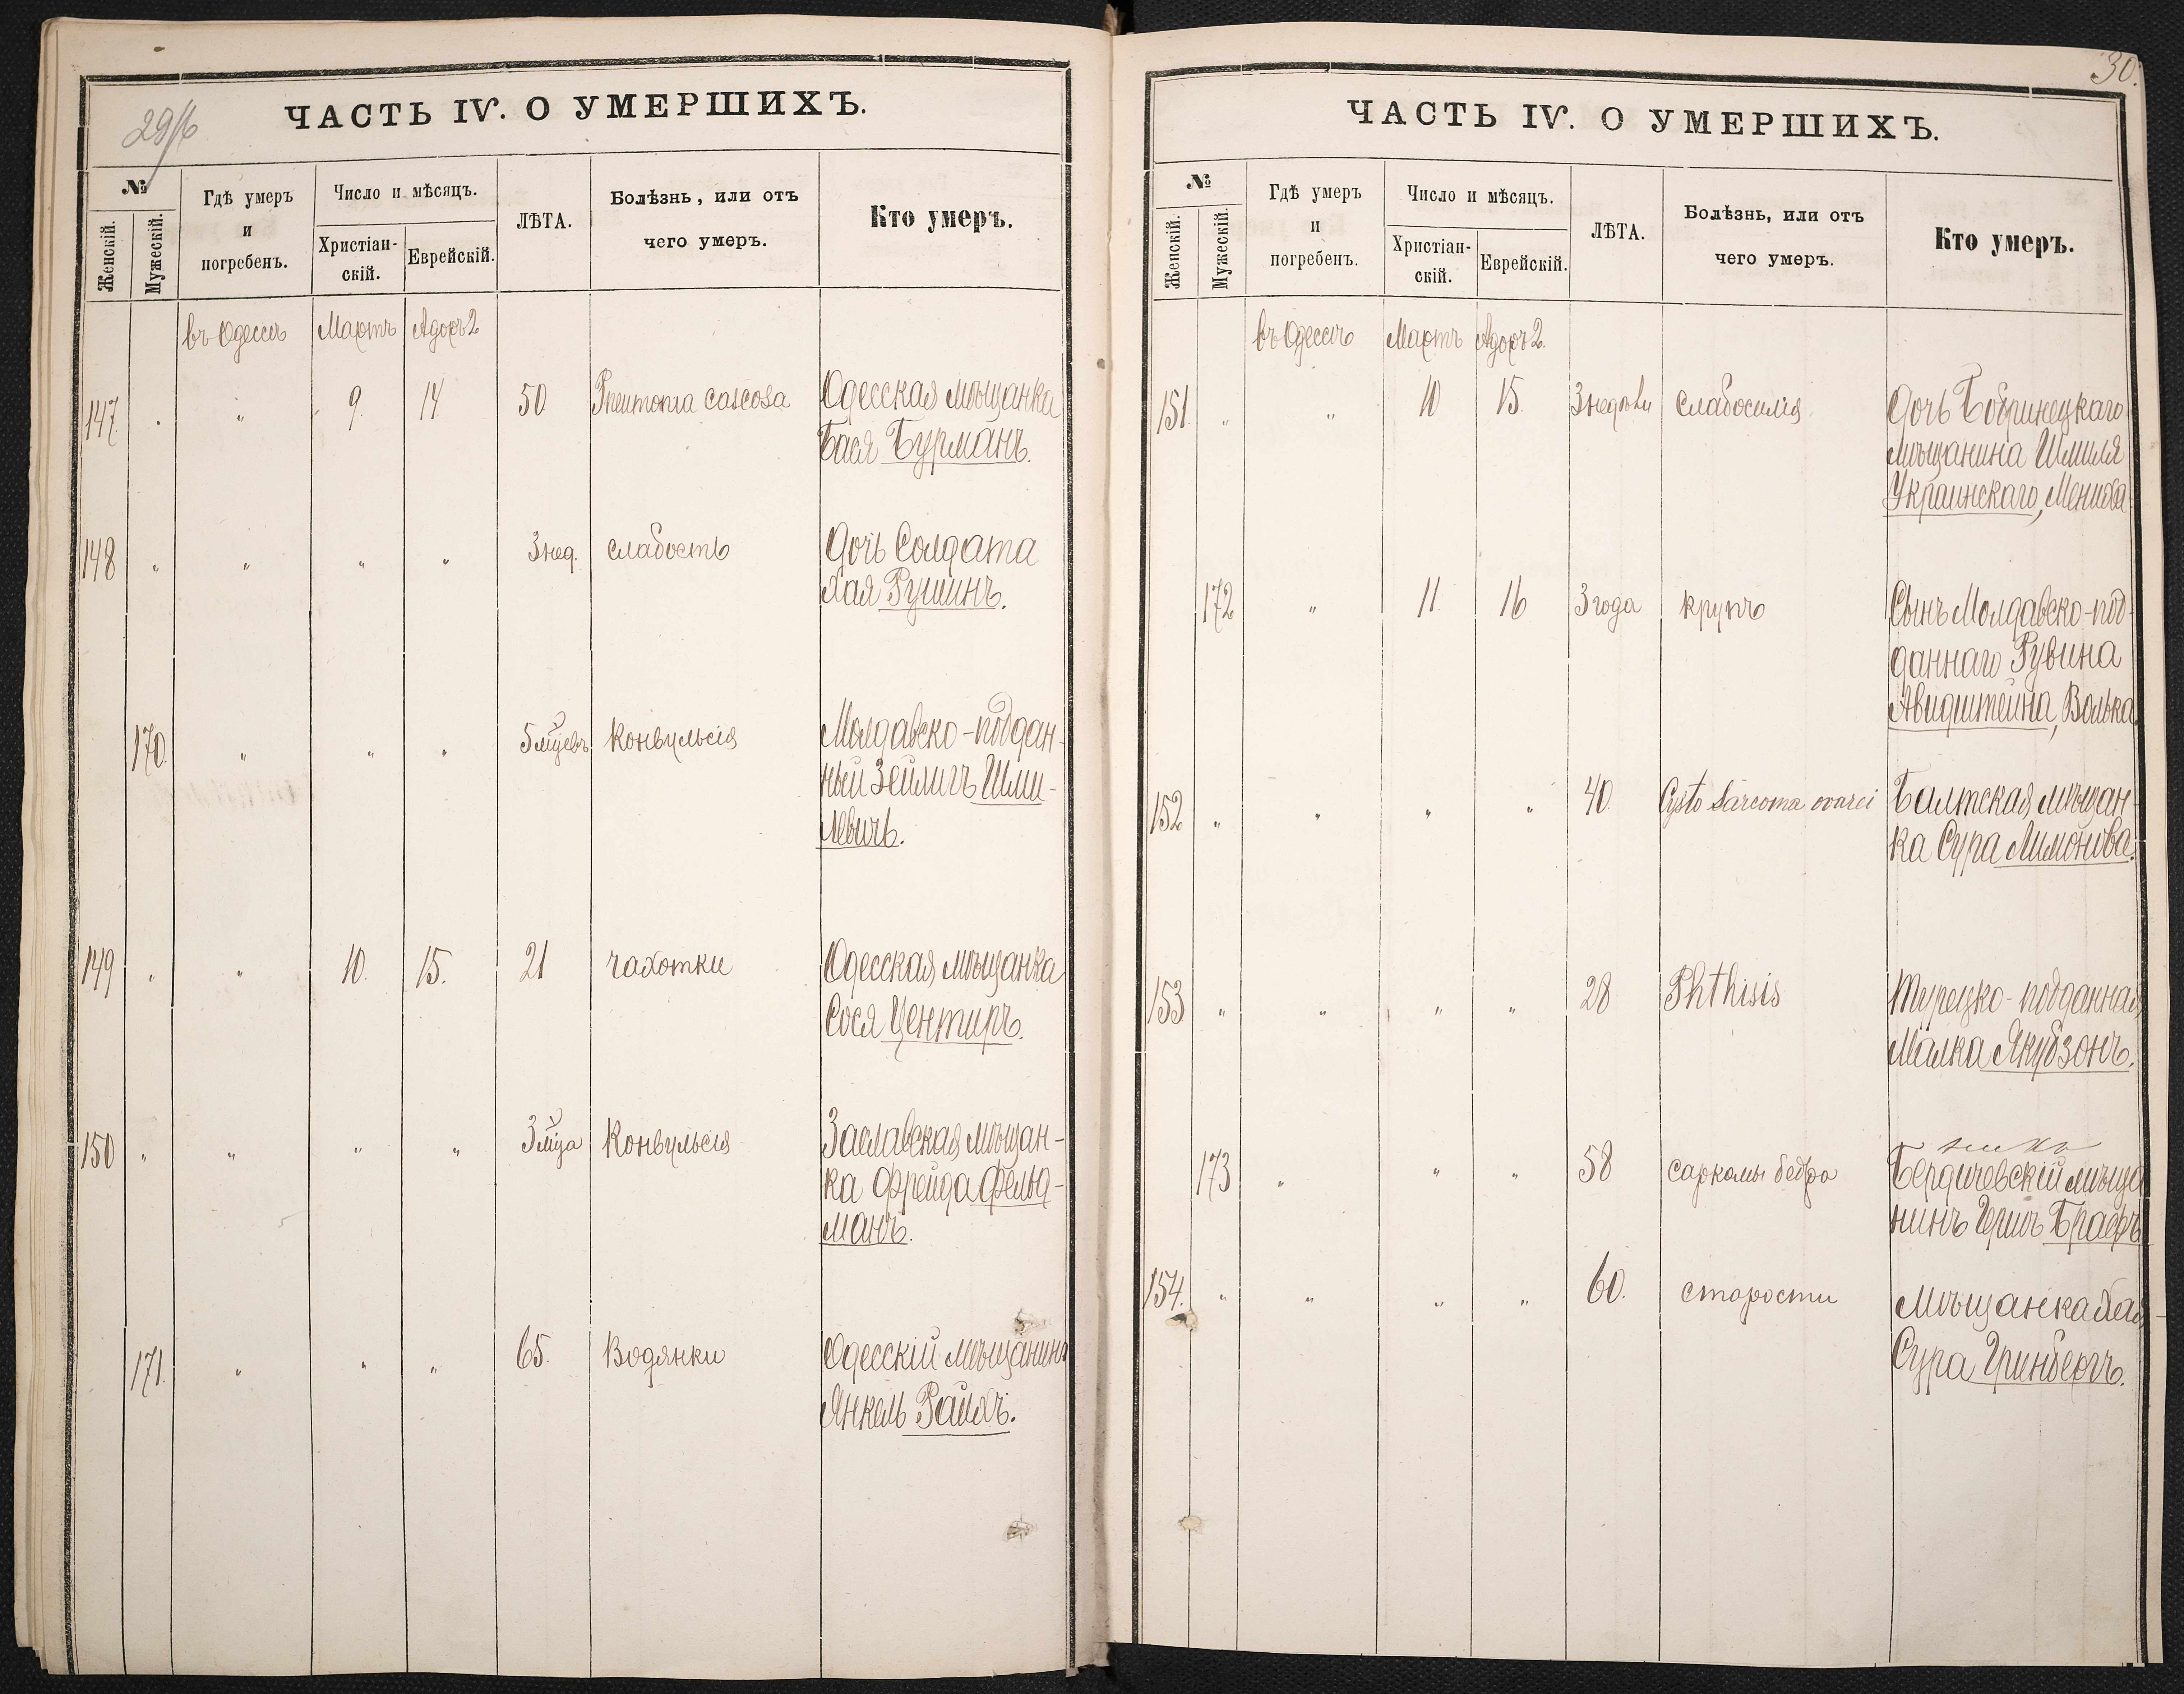 29/б
ЧАСТЬ IV. О УМЕРШИХЪ.
№
Женскій.
Мужескій.
Гдѣ умеръ
и
погребенъ.
Число и мѣсяцъ.
Христіан-
скій.
Еврейскій.
ЛѢТА.
Болѣзнь, или отъ
чего умеръ.
Кто умеръ.
въ Одессѣ Мартъ Адаръ 2
147 " " 9. 14 50 Pneumonia caseosa Одесская мѣщанка
Бася Бурманъ.
148 " " " " 3 нед. слабость Дочь Солдата
Хая Рушинъ.
170 " " " 5 мцевъ Конвульсія Молдавско-поддан-
ный Зейлигъ Шми-
левичъ.
149 " " 10. 15. 21 чахотки Одесская мѣщанка
Сося Центиръ.
150 " " " " 3 мца Конвульсія Заславская мѣщан-
ка Фрейда Фельд-
манъ.
171. " " " 65. Водянки Одесскій мѣщанинъ
Янкель Райхъ.
30.
ЧАСТЬ IV. О УМЕРШИХЪ.
№
Женскій.
Мужескій.
Гдѣ умеръ
и
погребенъ.
Число и мѣсяцъ.
Христіан-
скій.
Еврейскій.
ЛѢТА.
Болѣзнь, или отъ
чего умеръ.
Кто умеръ.
въ Одессѣ Мартъ Адаръ 2.
151 " " 10 15. 3 недѣли слабосилія Дочь Бобринецкаго
мѣщанина Шмиля
Украинскаго, Мениха
172 " 11 16 3 года крупъ Сынъ Молдавско-под-
даннаго Рувина
Авидштейна, Волька
152 " " " " 40. Cysto Sarcoma ovarii Балтская мѣщан-
ка Сура Лимонова.
153 " " " " 28 Phthisis Турецко-подданная
Малка Якубзонъ.
173 " " " 58 саркомы бедра Бердичевскій мѣща
нинъ Герш Брафъ
154. " " " " 60. старости Мѣщанка Хая-
Сура Гринбергъ.